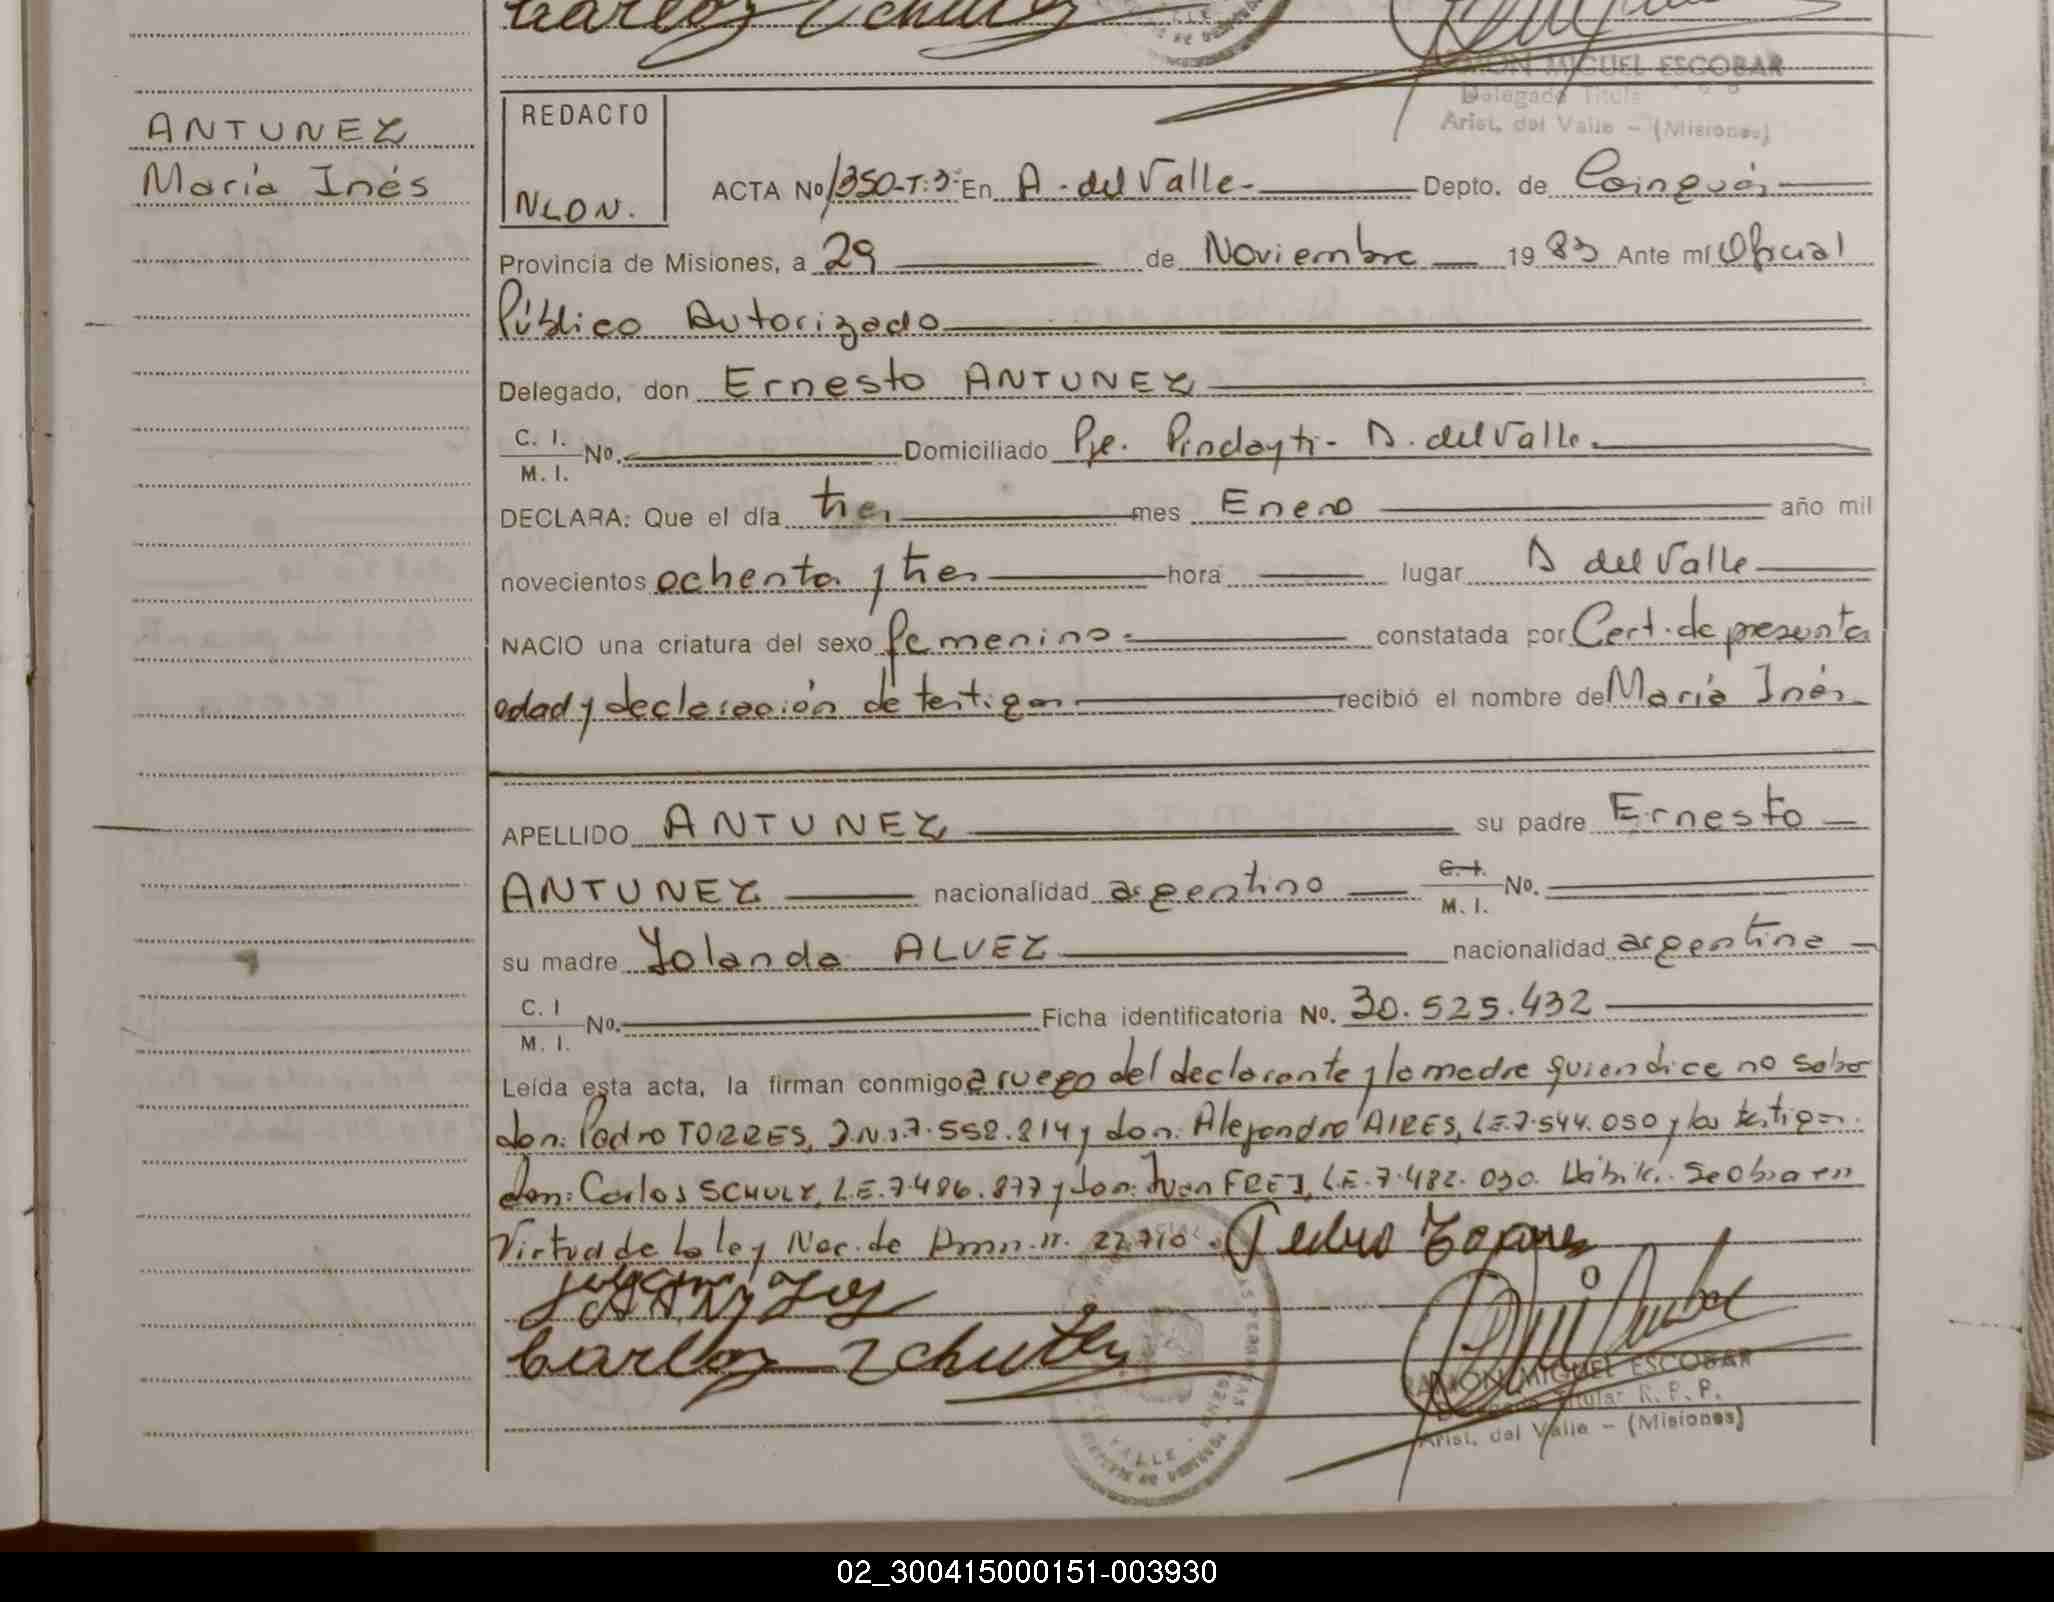 Carlos Schutz
RAMON MIGUEL ESCOBAR
Delegado Titular
Arist. del Valle - (Misiones)
ANTUNEZ
María Inés
REDACTO
ACTA No 1350-T:3- En A. del Valle. Depto. de Cainguás
Provincia de Misiones, a 29 de Noviembre 1983 Ante mí Oficial
Público Autorizado
Delegado, don Ernesto ANTUNEZ
C. I.
M. I. No. Domiciliado Pje. Pindayti - A. del Valle.
DECLARA: Que el día tres mes Enero año mil
novecientos ochenta y tres hora lugar A del Valle
NACIO una criatura del sexo femenino constatada por Cert. de presunta
edad y declaración de testigos recibió el nombre de María Inés
APELLIDO ANTUNEZ su padre Ernesto
ANTUNEZ nacionalidad argentino C. I. M. I. No.
su madre Yolanda ALVEZ nacionalidad argentina
C. I
M. I. No. Ficha identificatoria No. 30.525.432
Leída esta acta, la firman conmigo a ruego del declarante y la madre quien dice no saber
don: Pedro TORRES, 7.558.814 y don: Alejandro AIRES, L.E.7.544.050 y los testigos
don: Carlos SCHULZ, L.E.7.486.877 y don: Juan FREJ, L.E.7.482.030. Hábiles. Se obra en
Virtud de la ley Nac. de Amn. n. 22.710.
Carlos Schutz
RAMON MIGUEL ESCOBAR
Delegado Titular R. P. P.
Arist. del Valle - (Misiones)
02_300415000151-003930